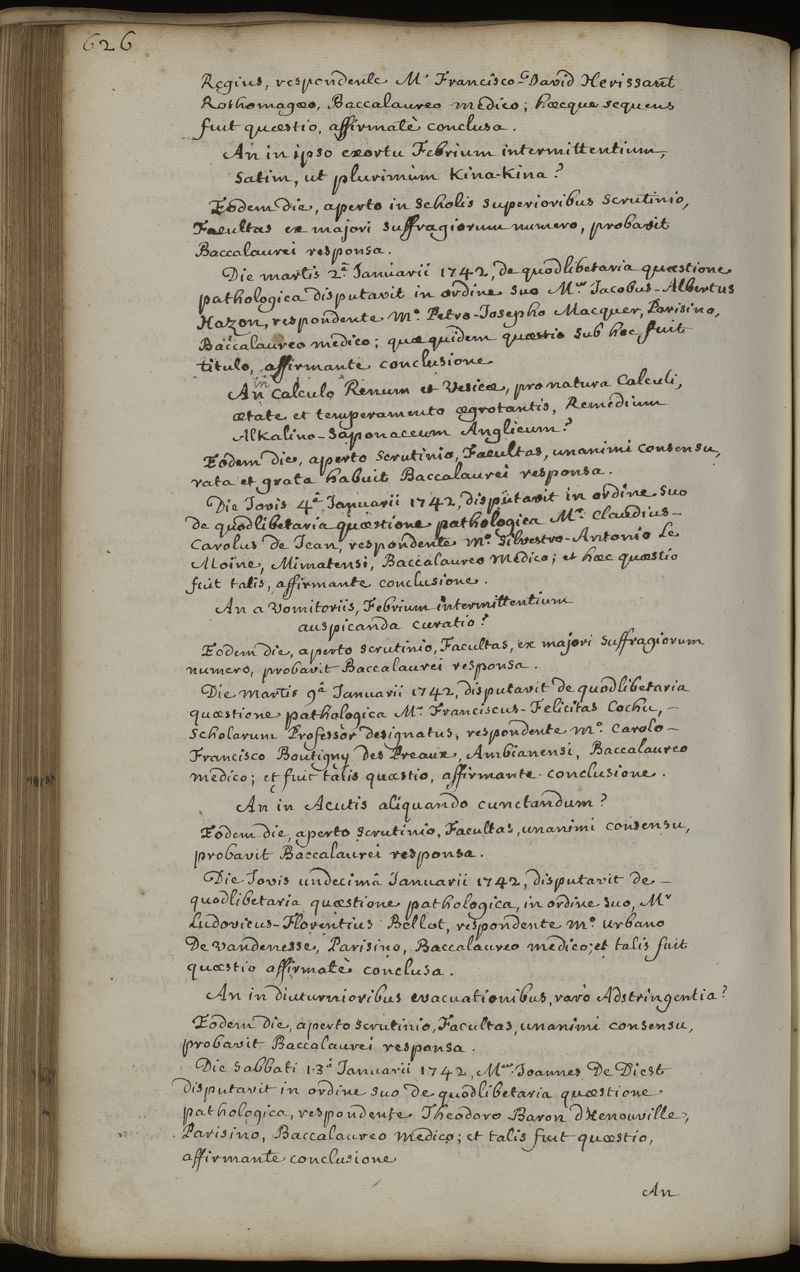 626
Regius, respondente Mº Francisco-David Herissant
Rothomagæo, Baccalaureo medico; hæcque sequens
fuit quæstio, affirmatè conclusa.
An in ipso exortu Febrium intermittentium,
Satim, ut plurimùm Kina-Kina?
Eodem die, aperto in Scholis superioribus Scrutinio,
Facultas ex majori suffragiorum numero, probavit
Baccalaurei responsa.
Die martis 2ª Ianuarii 1742, de quodlibetaria quæstione
pathologica disputavit in ordine suo Mer Iacobus-Albertus
Hazon, respondente Mº Petro-Iosepho Macquer, Parisino,
Baccalaureo medico; quæ quidem quæstio sub hoc fuit
titulo, affirmante conclusione
An in Calculo Renum et Vesicæ, pro natura Calculi,
ætate et temperamento ægrotantis, Remedium
Alkalino-Saponaceum Anglicum?
Eodem die, aperto Scrutinio, Facultas, unanimi consensu,
rata et grata habuit Baccalaurei responsa.
Die Iovis 4ª Ianuarii 1742, disputavit in ordine suo
de quodlibetaria quæstione pathologica Mer Claudius-
Carolus de Iean, respondente Mº Silvestro-Antonio Le
Moine, Mimatensi, Baccalaureo Medico; et hæc quæstio
fuit talis, affirmante conclusione.
An a Vomitoriis, Febrium intermittentium
auspicanda curatio?
Eodem die, aperto Scrutinio, Facultas, ex majori Suffragiorum
numero, probavit Baccalaurei responsa.
Die Martis 9ª Ianuarii 1742, disputavit de quodlibetaria
quæstione pathologica Mr Franciscus-Felicitas Cochu, -
Scholarum Professor designatus, respondente mº Carolo-
Francisco Boutigny Des Preaux, Ambianensi, Baccalaureo
medico; et fuit talis quæstio, affirmante conclusione.
An in Acutis aliquando cunctandum?
Eodem die, aperto Scrutinio, Facultas, unanimi consensu,
probavit Baccalaurei responsa.
Die Iovis undecimâ Ianuarii 1742, disputavit de -
quodlibetaria quæstione pathologica, in ordine suo, Mr
Ludovicus-Florentius Bellot, respondente mº Urbano
De Vandenesse, Parisino, Baccalaureo medico; et talis fuit
quæstio affirmatè conclusa.
An in diuturnioribus evacuationibus, rarò Adstringentia?
Eodem die, aperto Scrutinio, Facultas, unanimi consensu,
probavit Baccalaurei responsa.
Die Sabbati 13ª Ianuarii 1742, Mer Ioannes De Diest
disputavit in ordine suo de quodlibetaria quæstione
pathologica, respondente Theodoro Baron d'Henouville,
Parisino, Baccalaureo medico; et talis fuit quæstio,
affirmante conclusione
An